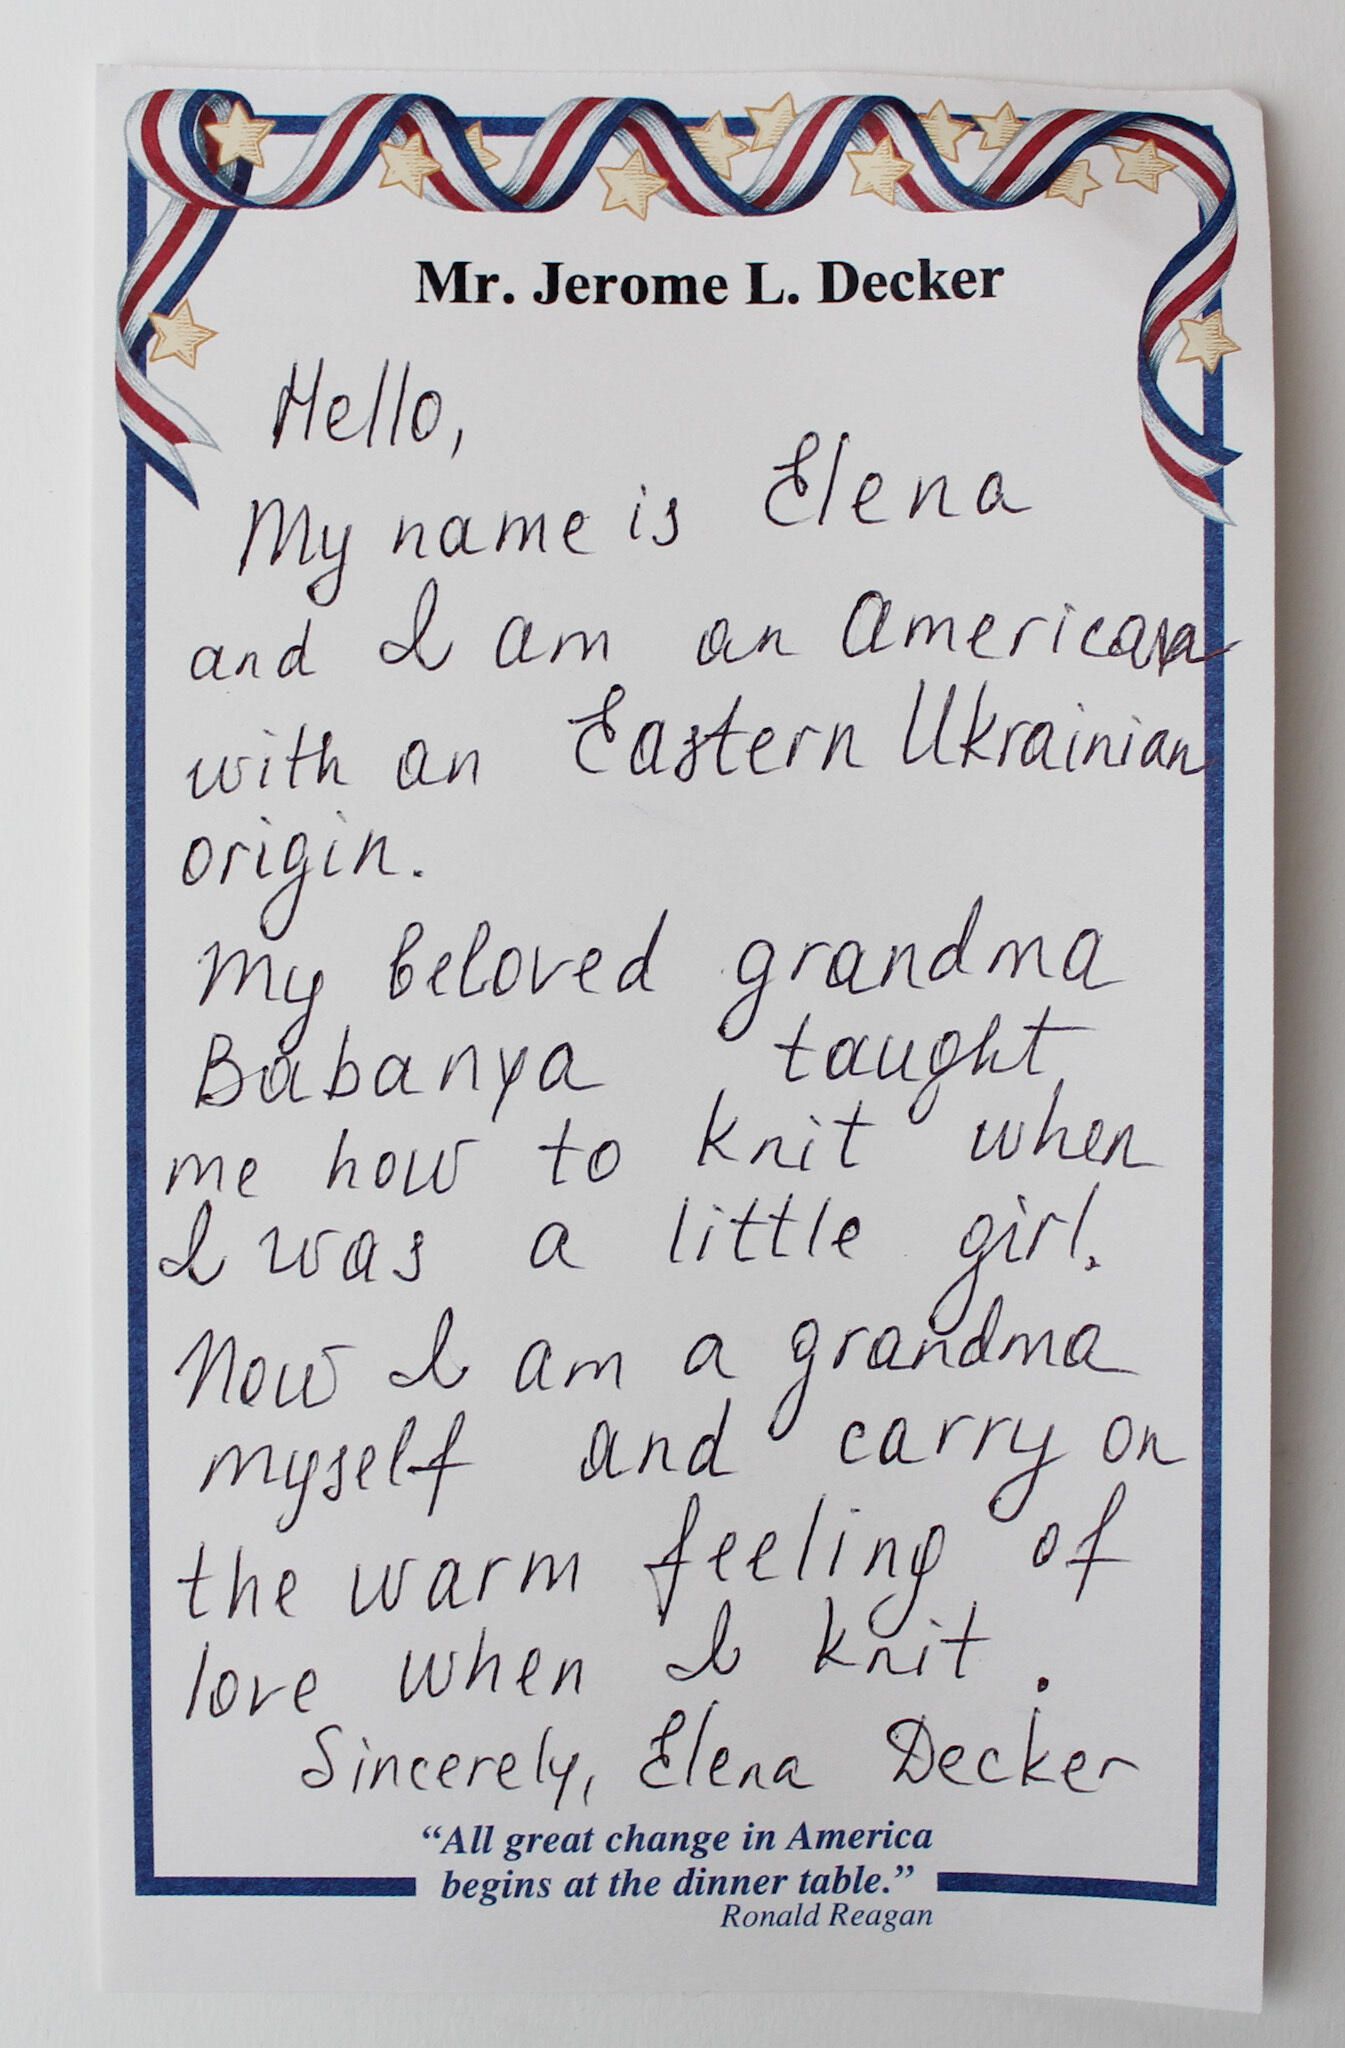 Mr. Jerome L. Decker
Hello,
My name is Elena
and I am an American
with an Eastern Ukrainian
origin.
My beloved grandma
Babanya taught
me how to knit when
I was a little girl.
Now I am a grandma
myself and carry on
the warm feeling of
love when I knit.
Sincerely, Elena Decker
“All great change in America
begins at the dinner table.”
Ronald Reagan